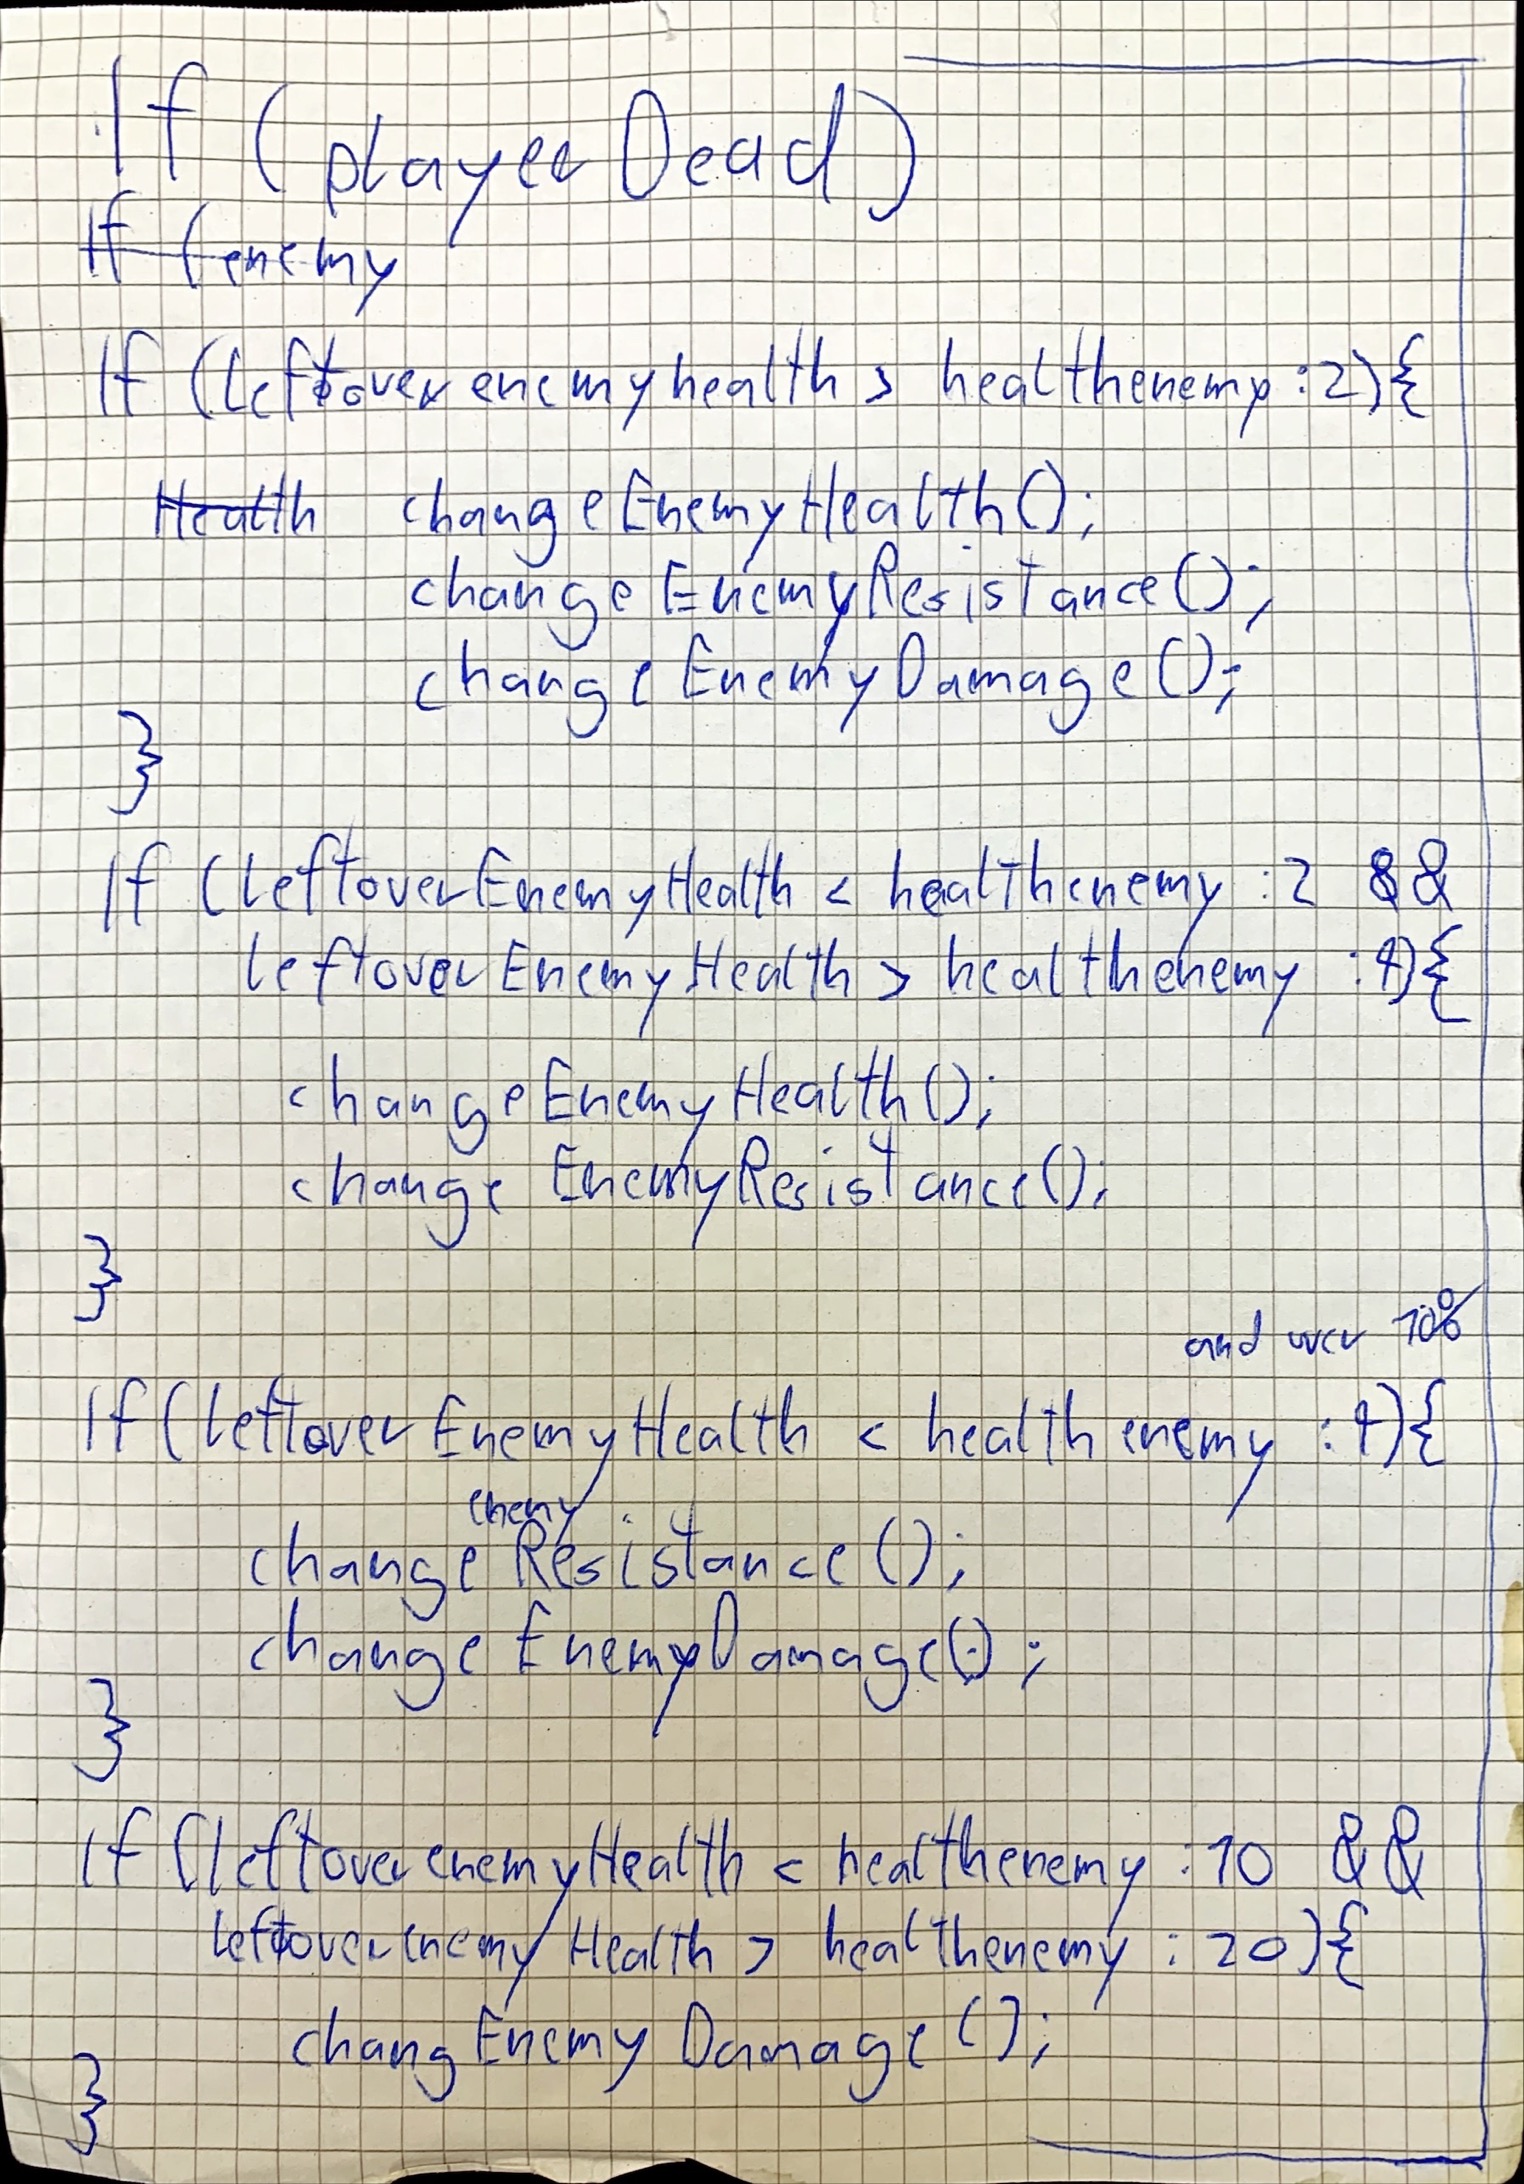 If (playerDead)
If (enemy
If (leftoverenemyhealth > healthenemy :2){
Health changeEnemyHealth();
changeEnemyResistance();
changeEnemyDamage();
}
If (leftoverEnemyHealth < healthenemy :2 &&
leftoverEnemyHealth > healthenemy :4){
changeEnemyHealth();
changeEnemyResistance();
}
and over 10%
If (leftoverEnemyHealth < healthenemy :4){
enemy
changeResistance();
changeEnemyDamage();
}
If (leftoverenemyHealth < healthenemy :10 &&
leftoverenemyHealth > healthenemy :20){
changEnemyDamage();
}